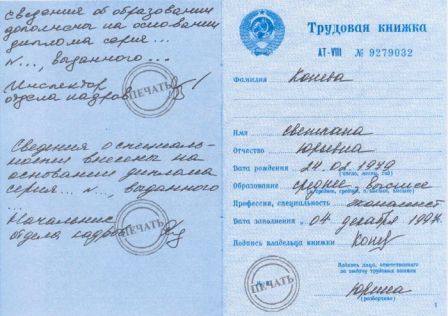 Сведения об образовании
дополнены на основании
диплома серия...
№..., выданного...
Инспектор
отдела кадров
ПЕЧАТЬ
Сведения о специаль-
ности внесены на
основании диплома
серия... №, выданного
...
Начальник
отдела кадров
ПЕЧАТЬ
Трудовая книжка
АТ-VIII № 9279032
Фамилия
Имя Светлана
Отчество Юрьевна
Дата рождения 24.02.1979
(число, месяц, год)
Образование среднее, высшее
Профессия, специальность экономист
Дата заполнения 04 декабря
Подпись владельца книжки
Подпись лица, ответственного
за выдачу трудовых книжек
ПЕЧАТЬ
(разборчиво)
1